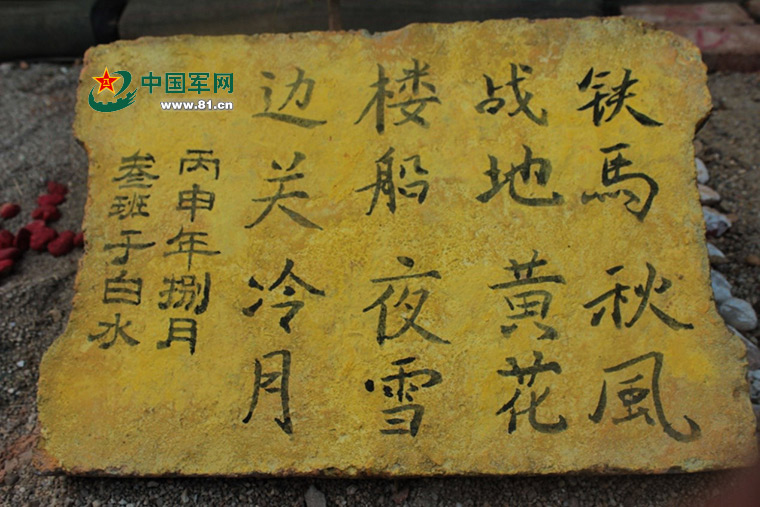 铁马秋風
战地黄花
楼船夜雪
边关冷月
丙申年捌月
叁班于白水
中国军网
www.81.cn